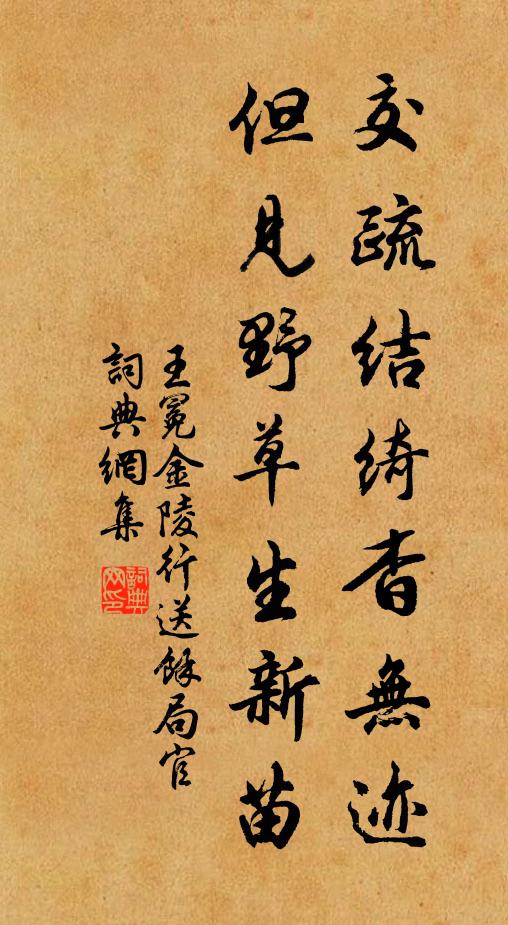 交疏結綺杳無迹
但見野草生新苗
王冕金陵行送餘局官
詞典網集
詞典网印